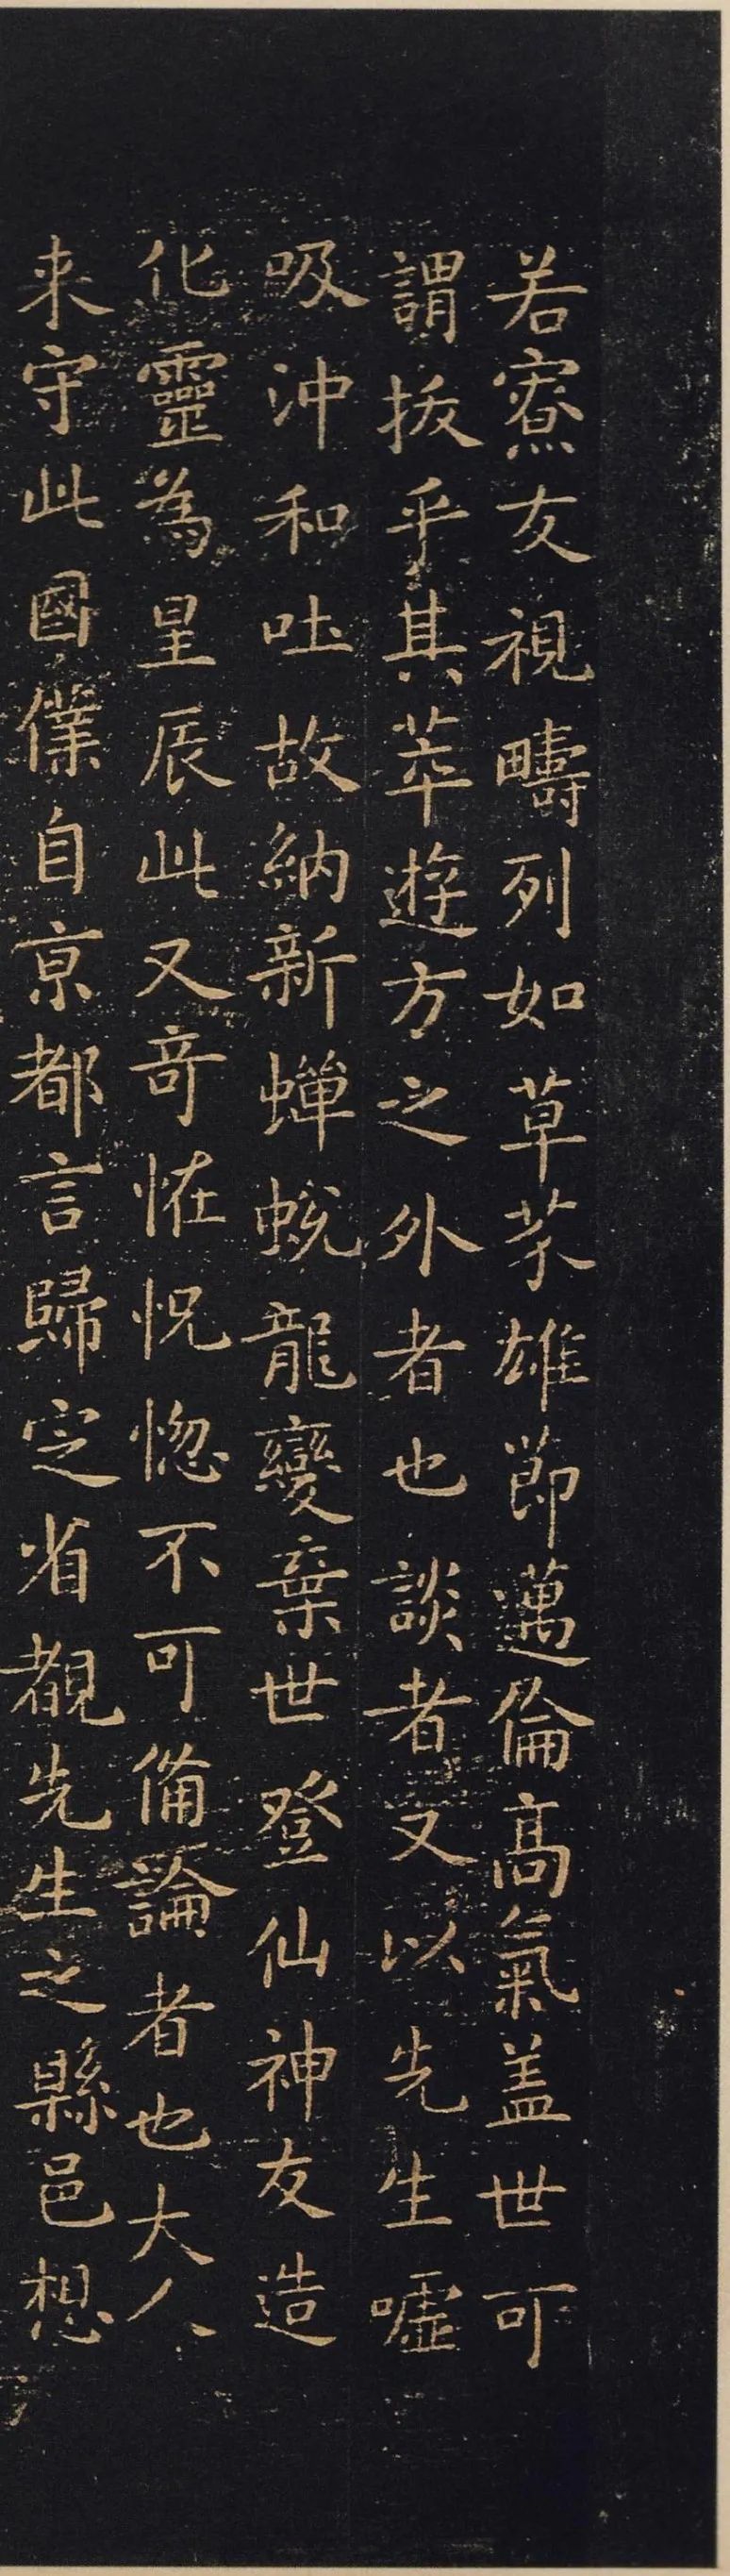 若寮友視疇列如草芥雄節邁倫高氣盖世可
謂拔乎其萃遊方之外者也談者又以先生噓
吸沖和吐故納新蟬蛻龍變棄世登仙神友造
化靈為星辰此又奇恠怳惚不可備論者也大人
来守此國僕自京都言歸定省覩先生之縣邑想